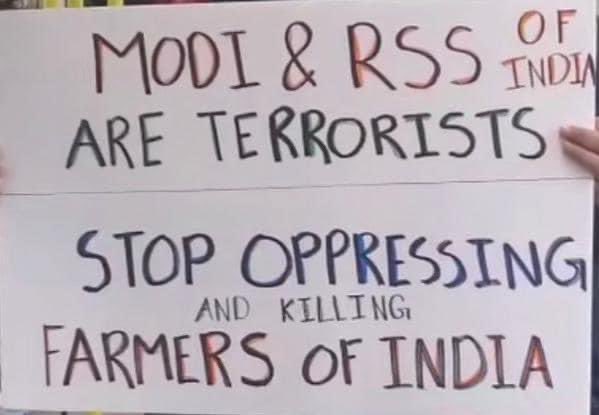 MODI & RSS OF INDIA
ARE TERRORISTS
STOP OPPRESSING
AND KILLING
FARMERS OF INDIA